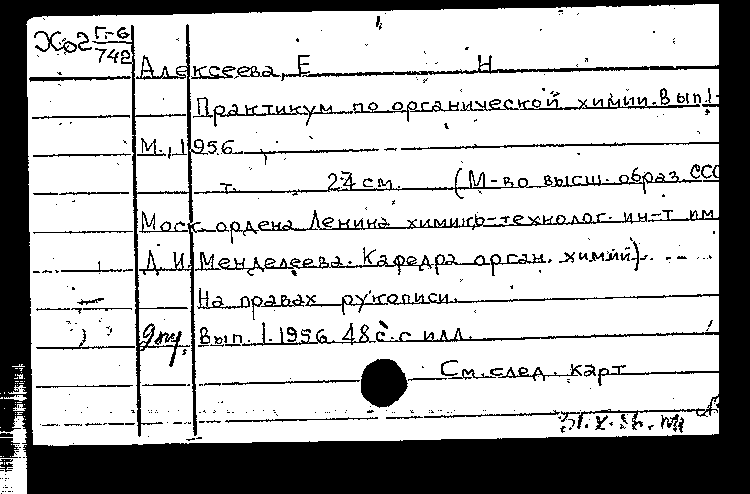 Хо2 Г-6/742
Алексеева, Е Н
Практикум по органической химии. Вып. 1-
М., 1956
т. 27 см. (М-во высш. образ. ССС
Моск. ордена Ленина химико-технолог. ин-т им
Д. И. Менделеева. Кафедра орган. химии).
На правах рукописи.
Вып. 1. 1956. 48 с. с илл.
См. след. карт